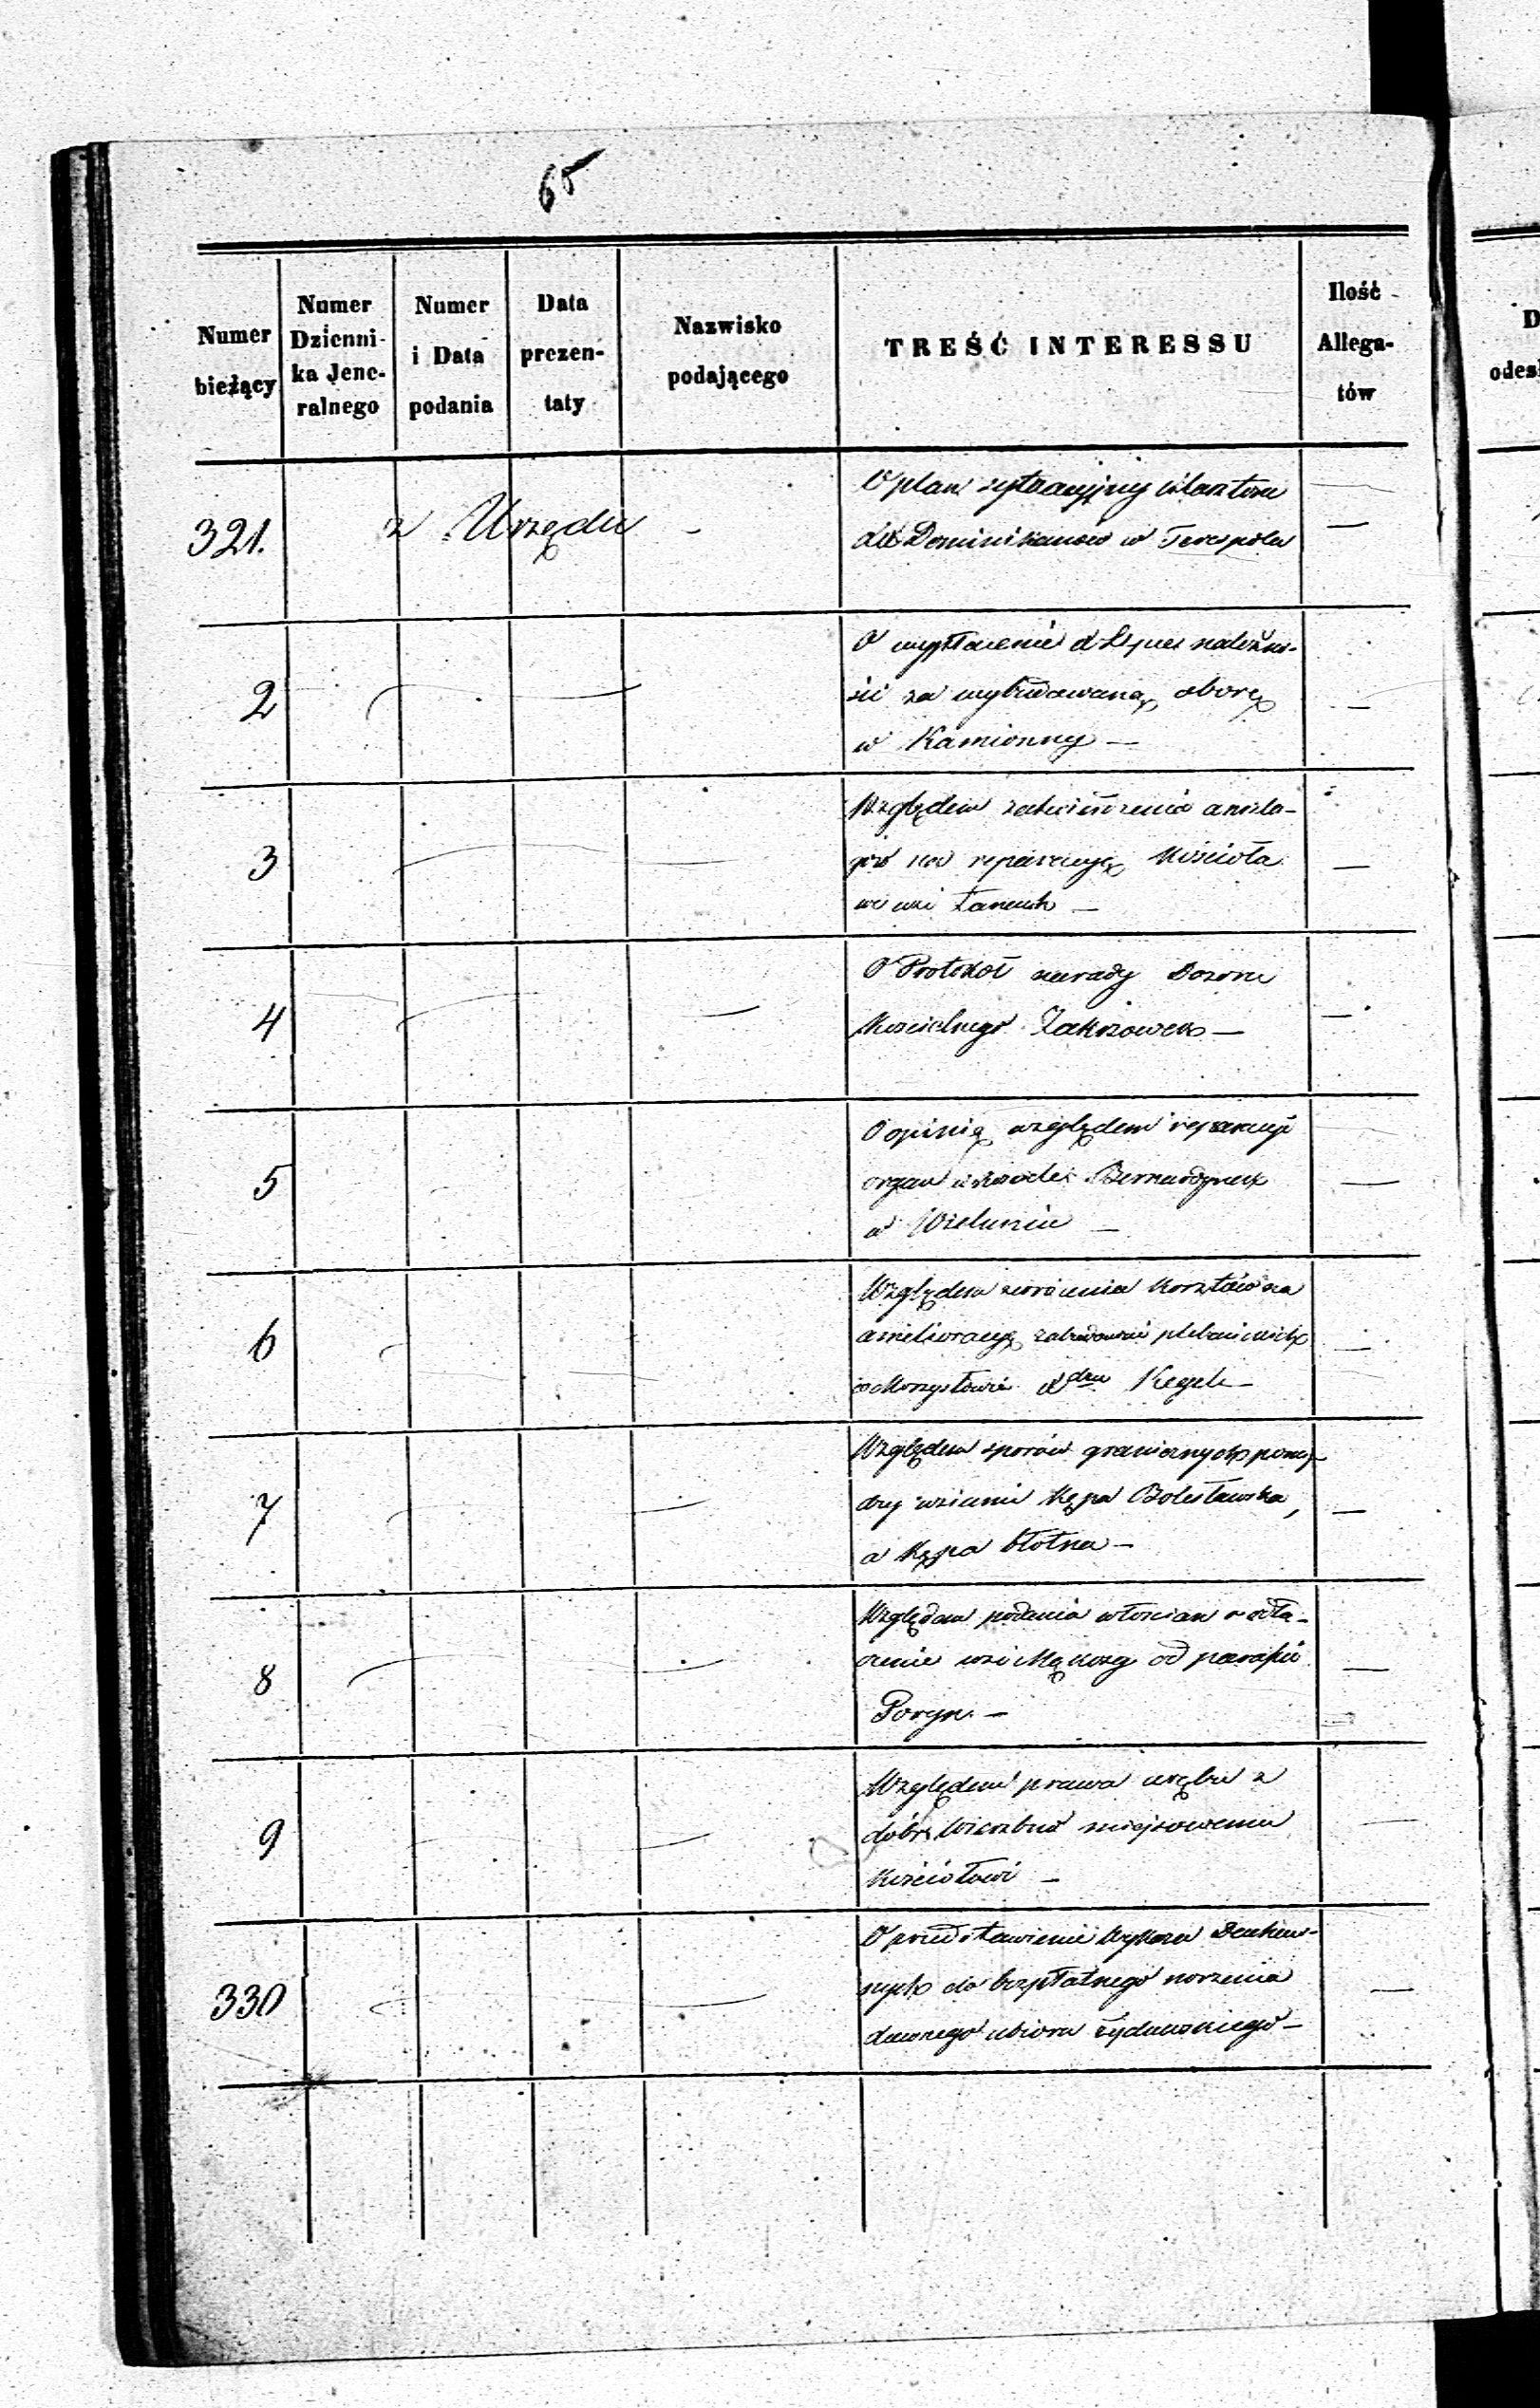 65
Numer bieżący
Numer Dzienni- ka Jene- ralnego
Numer i Data podania
Data prezen- taty
Nazwisko podającego
TREŚĆ INTERESSU
Ilość Allega- tów
D
odes
321. z Urzędu - O plan sytuacyjny klasztoru
Dominikanów w Terespolu —
2 O wypłacenie należno-
ści za wybudowaną oborę —
w Kamionny —
3 Względem zatwierdzenia ansla-
gów na reparacyę Kościoła —
we wsi Łancuch —
4 O Protokół narady Dozoru
Kościelnego Zakrzowek — —
5 O opinią względem reparacyi
organ w Kościele Bernardynek —
w Wieluniu —
6 Względem zwrócenia kosztów za
amelioracyę zabudowań plebańskich —
w Morzysławie Kegel —
7 Względem sporów granicznych pomię-
dzy wsiami Kępa Bolesławska, —
a Kępa błotna —
8 Względem podania włościan o odłą-
czenie wsi od parafii —
Goryn. —
9 Względem prawa wrębu z
dóbr Wierzbno miejscowemu
Kościołowi —
330 O przedstawienie wykazu Duchow-
nych do bezpłatnego noszenia —
dawnego ubioru żydowskiego —